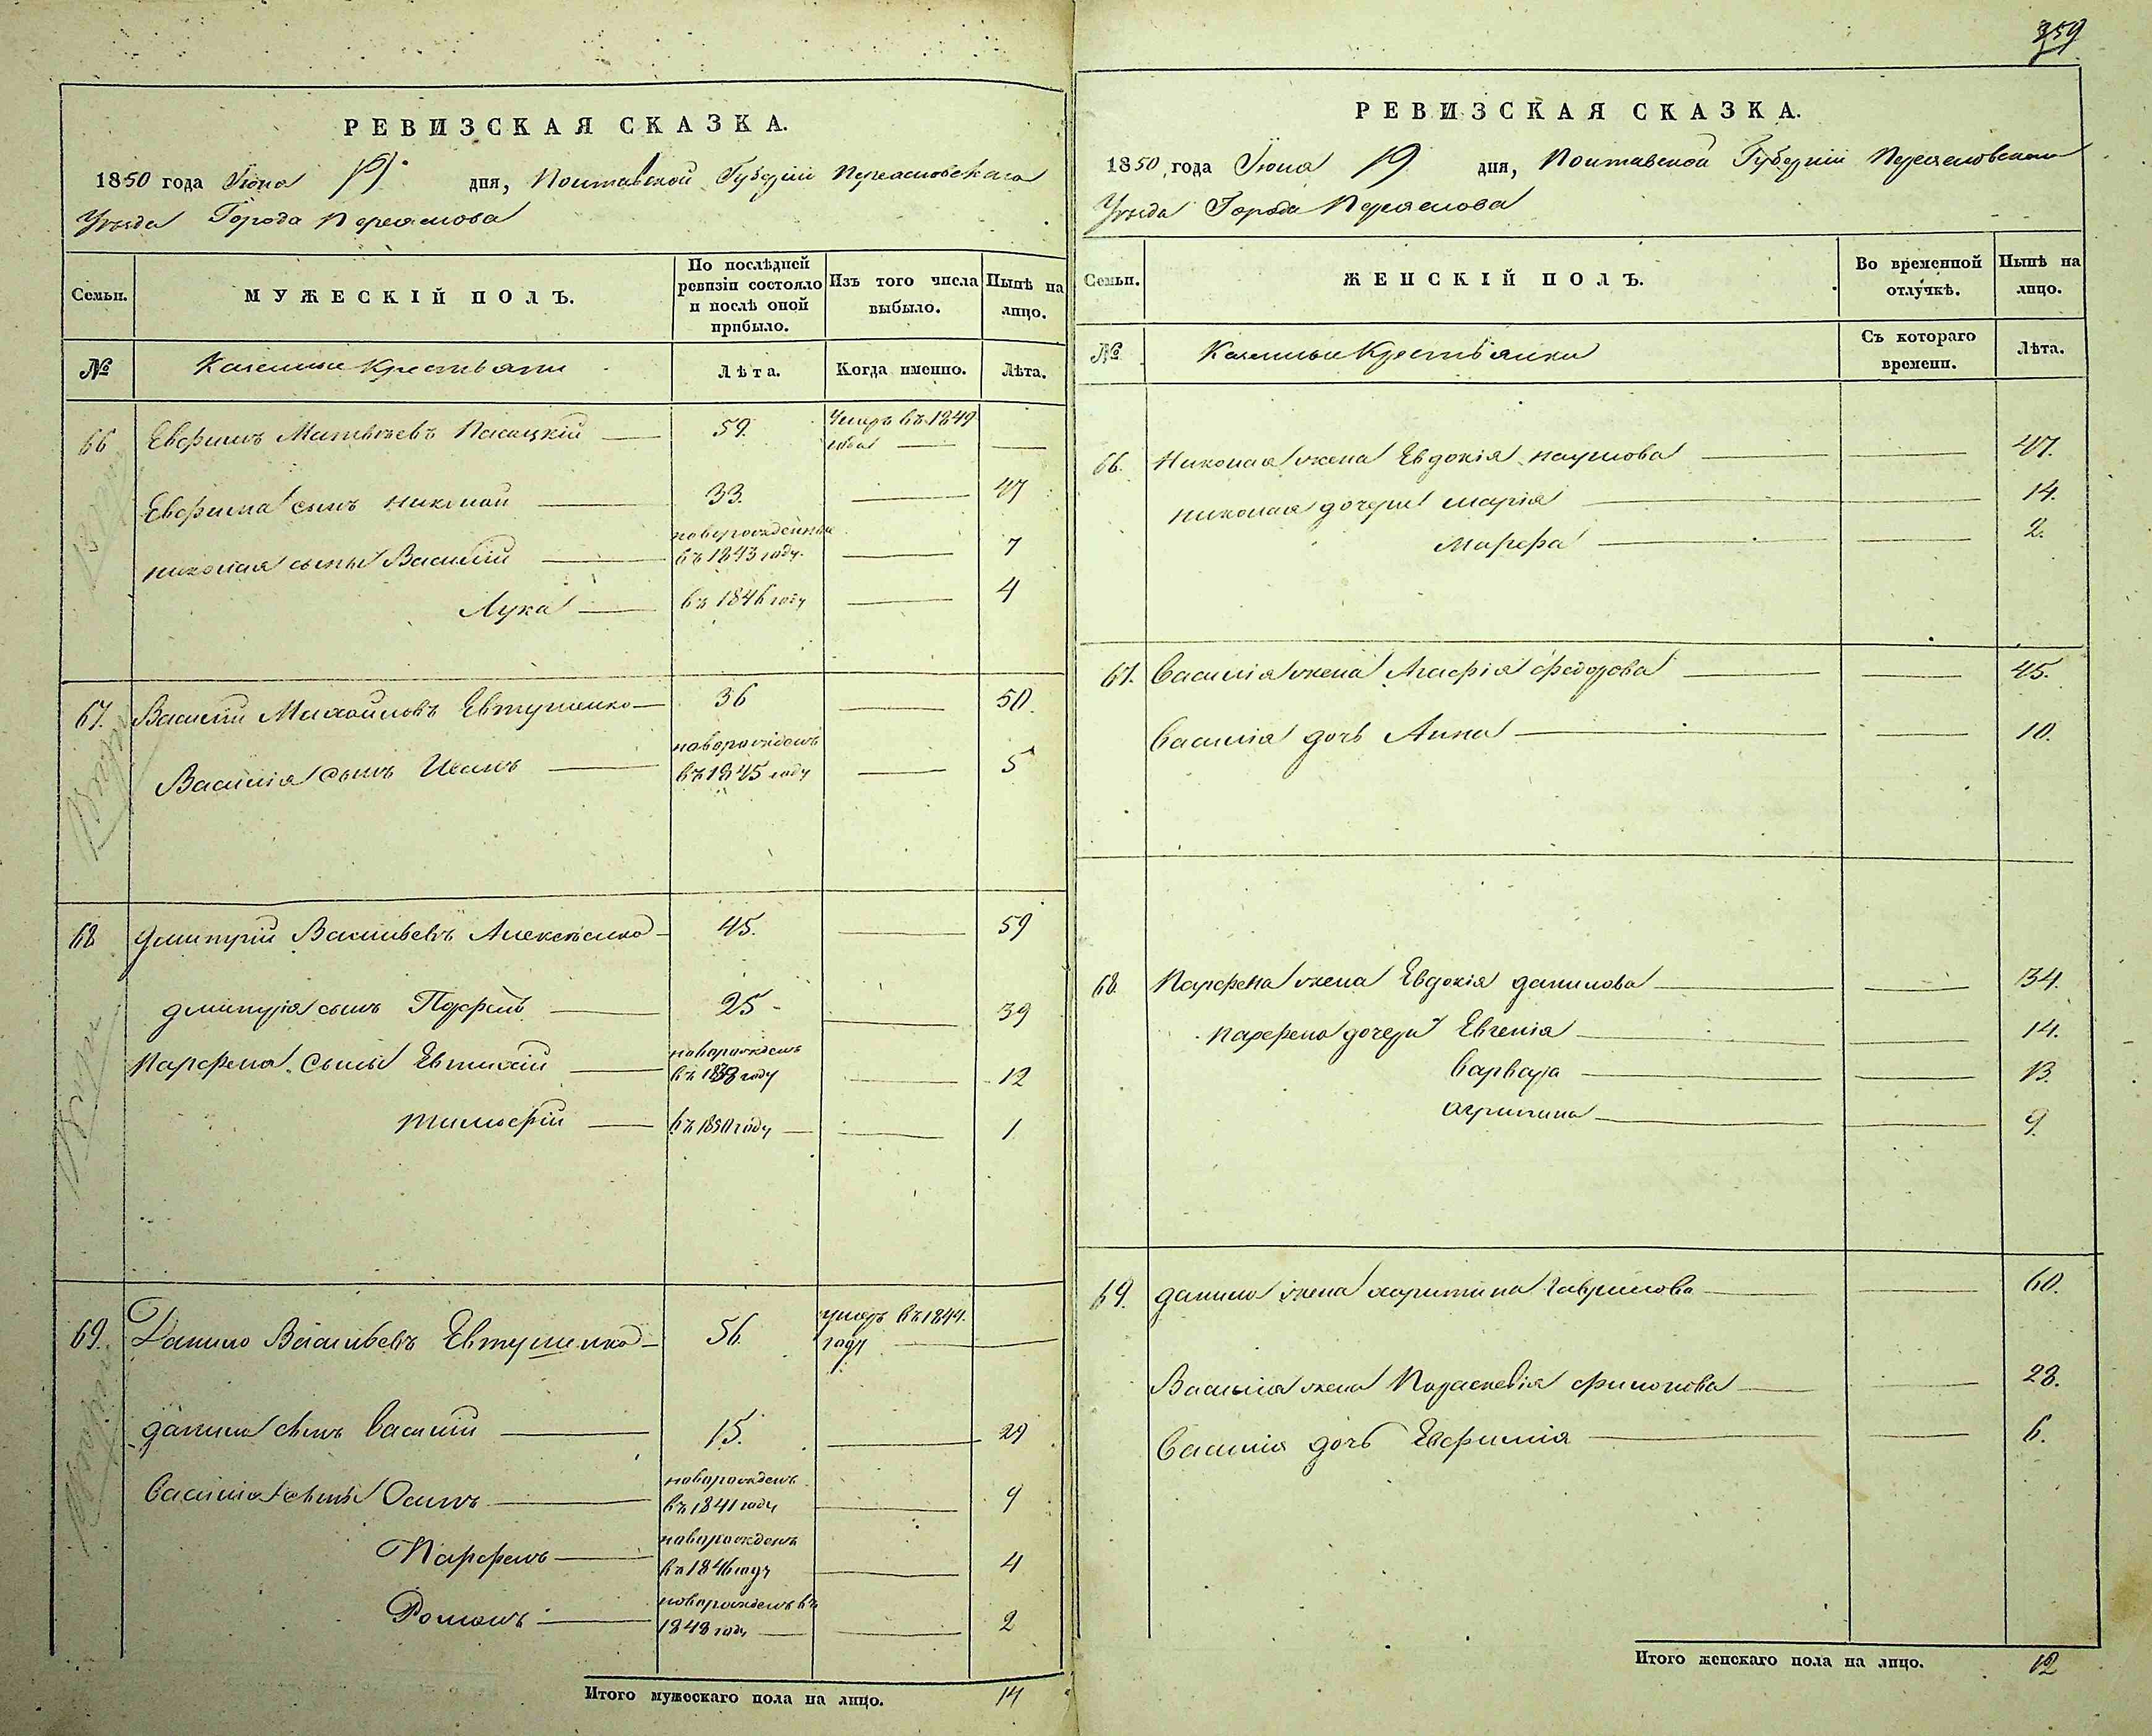 359
РЕВИЗСКАЯ СКАЗКА.
1850 года Іюня 19 дня, Полтавской Губерніи Переясловскаго
Уѣзда Города Переяслова
Семьи.
МУЖЕСКІЙ ПОЛЪ.
По послѣдней ревизіи состояло и послѣ оной прибыло.
Изъ того числа выбыло.
Нынѣ на лицо.
№
Казенные Крестьяни
Лѣта.
Когда именно.
Лѣта.
66 Евфимъ Матвѣевъ 59. Умеръ въ 1849 года
Евфима сынъ Николай 33. 47
Николая сыны Василій новорожденный въ 1843 году. 7
Лука въ 1846 году 4
67. Василій Михайловъ Евтушенко 36 50.
Василія сынъ Иванъ новорожденъ въ 1845 году 5
68 Дмитрій Васильевъ Алексѣенко 45. 59
Дмитрія сынъ Парфенъ 25 39
Парфена сыны Евтихій новорожденъ въ 1838 году 12
Тимофій въ 1850 году 1
69. Данило Васильевъ Евтушенко 56. умеръ въ 1844. году
Данила сынъ Василій 15. 29
Василія сыны Осипъ новорожденъ въ 1841 году 9
Парфенъ новорожденъ въ 1846 году 4
Романъ новорожденъ въ 1848 году 2
Итого мужескаго пола на лицо. 14
РЕВИЗСКАЯ СКАЗКА.
1850 года Іюня 19 дня, Полтавской Губерніи Переясловскаго
Уѣзда Города Переяслова
Семьи.
ЖЕНСКІЙ ПОЛЪ.
Во временной отлучкѣ.
Нынѣ на лицо.
№
Казенныи Крестьянки
Съ котораго времени.
Лѣта.
66. Николая жена Евдокія Наумова 47.
Николая дочери Марія 14.
Марфа 2.
67. Василія жена Агафія Федорова 45.
Василія дочь Анна 10.
68. Парфена жена Евдокія Данилова 34.
Парфена дочери Евгенія 14.
Варвара 13.
Агрипина 9.
69. Данила жена Харитина Гаврилова 60.
Василія жена Параскевія Филонова 28.
Василія дочь Евфимія 6.
Итого женскаго пола на лицо. 12